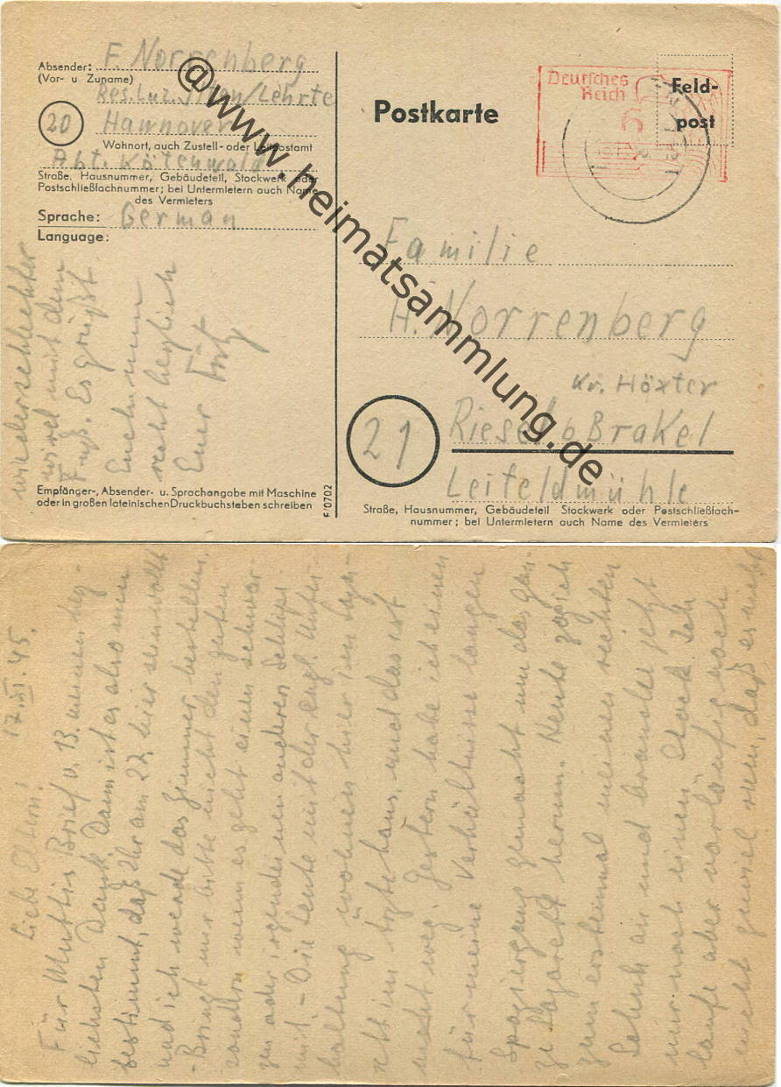 Absender: F. Norrenberg
(Vor- u. Zuname)
Res. Laz. Ilten/Lehrte
20
Hannover
Wohnort, auch Zustell- oder Leitpostamt
Abt. Kötenwald
Straße, Hausnummer, Gebäudeteil, Stockwerk oder
Postschließfachnummer; bei Untermietern auch Name
des Vermieters
Sprache: German
Language:
wieder schlechter
wird mit dem
Fuß. Es grüßt
Euch nun
recht herzlich
Euer
Empfänger-, Absender- u. Sprachangabe mit Maschine
oder in großen lateinischen Druckbuchstaben schreiben
F/0702
Postkarte
Deutsches
Reich
Feld-
post
Familie
H. Norrenberg
Kr. Höxter
21
Riesel b Brakel
Leifeldmühle
Straße, Hausnummer, Gebäudeteil Stockwerk oder Postschließfach-
nummer; bei Untermietern auch Name des Vermieters
@www.heimatsammlung.de
17.XI.45.
Liebe Eltern!
Für Muttis Brief v. 13. meinen herz-
lichsten Dank. Dann ist es also nun
bestimmt, daß Ihr am 22. hier sein wollt
und ich werde das Zimmer bestellen.
- Bringt mir bitte nicht den guten
sondern wenn es geht einen schwar-
zen oder irgendeinen anderen Schlips
mit. - Die Leute mit der engl. Unter-
haltung wohnen hier im
Ärztehaus und das ist
nicht weg. Gestern habe ich einen
für meine Verhältnisse langen
Spaziergang gemacht um das gan-
ze Lazarett herum. Heute zog ich
zum ersten mal meinen rechten
Schuh an und brauche jetzt
nur noch einen Stock. Ich
laufe aber vorläufig noch
nicht zuviel rum, daß es nicht